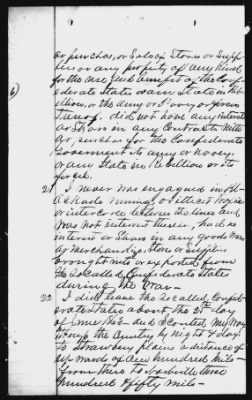 or purchase, or sales of Stores or Supp
lies or any property of any kind
for the use and benefit of the Conf
ederate States or any State in Reb
ellion, or the Army or Navy or forces
thereof. did not have any interest
or Share in any Contracts with
or, purchase for the Confederate
Government its army or navy
or any State in Rebellion or its
forces.
21 I never was engaged in Bl
ockade running or illicit traffic
or intercourse between the lines and
was not interest therein, had no
interest or Share in any goods Wares
or Merchandize, Stores or Supplies
brought into or exported from
the So Called Confederate States
during the War—
22 I did leave the So called Confed
erate States about the 25th day
of June 1863— and Scouted My Way
through the Country by night & day
to Strawberry plains a distance of
upwards of One hundred mile—
from there to Nashville two
hundred & fifty mile—